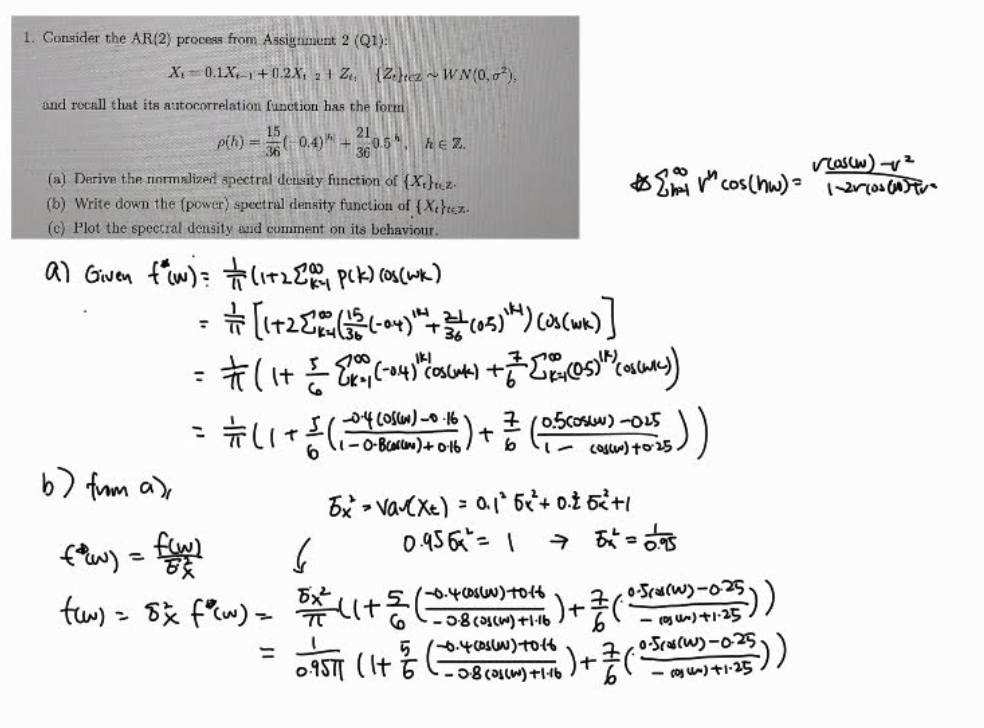 1. Consider the AR(2) process from Assignment 2 (Q1):
X_t = 0.1X_{t-1} + 0.2X_{t-2} + Z_t, {Z_t}_{t∈Z} ~ WN(0, σ²),
and recall that its autocorrelation function has the form
ρ(h) = 15/36 (-0.4)^{|h|} + 21/36 0.5^{|h|}, h ∈ Z.
(a) Derive the normalized spectral density function of {X_t}_{t∈Z}.
(b) Write down the (power) spectral density function of {X_t}_{t∈Z}.
(c) Plot the spectral density and comment on its behaviour.
Σ_{h=1}^∞ r^h cos(hw) = (r cos(w) - r²)/(1-2r cos(w)+r²
a) Given f*(w) = 1/π (1+2Σ_{k=1}^∞ ρ(k) cos(wk)
= 1/π [1+2Σ_{k=1}^∞ (15/36 (-0.4)^{|k|} + 21/36 (0.5)^{|k|}) cos(wk)]
= 1/π (1 + 5/6 Σ_{k=1}^∞ (-0.4)^{|k|} cos(wk) + 7/6 Σ_{k=1}^∞ (0.5)^{|k|} cos(wk))
= 1/π (1 + 5/6 ((-0.4 cos(w) - 0.16)/(1 - 0.8cos(w) + 0.16)) + 7/6 ((0.5cos(w) - 0.25)/(1 - cos(w) + 0.25)))
b) from a),
σ_x² = Var(X_t) = 0.1² σ_x² + 0.2² σ_x² + 1
0.95σ_x² = 1 → σ_x² = 1/0.95
f*(w) = f(w)/σ_x²
f(w) = σ_x² f*(w) = σ_x²/π (1 + 5/6 ((-0.4cos(w)+0.16)/(-0.8cos(w)+1.16)) + 7/6 ((0.5cos(w)-0.25)/(-cos(w)+1.25)))
= 1/0.95π (1 + 5/6 ((-0.4cos(w)+0.16)/(-0.8cos(w)+1.16)) + 7/6 ((0.5cos(w)-0.25)/(-cos(w)+1.25)))